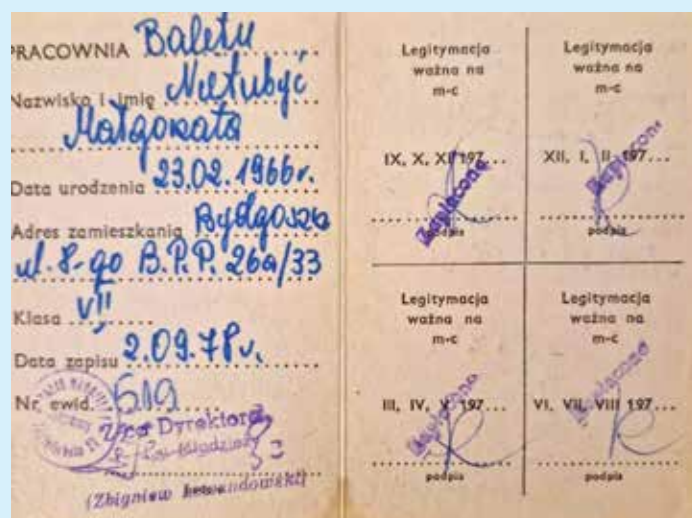 PRACOWNIA Baletu
Nazwisko i imię Nietubyć
Małgorzata
Data urodzenia 23.02.1966r.
Adres zamieszkania Bydgoszcz
ul. 8-go B.P.P. 26a/33
Klasa VII
Data zapisu 2.09.78r.
Nr. ewid. 519
Z-ca Dyrektora
(Zbigniew Lewandowski)
Legitymacja
ważna na
m-c
IX, X, XI 197...
Zapłacono
podpis
Legitymacja
ważna na
m-c
XII, I, II 197...
Zapłacono
podpis
Legitymacja
ważna na
m-c
III, IV, V 197...
Zapłacono
podpis
Legitymacja
ważna na
m-c
VI, VII, VIII 197...
Zapłacono
podpis